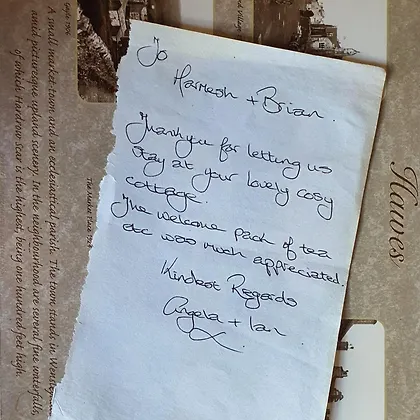 To
Harmesh + Brian.
Thankyou for letting us
stay at your lovely cosy
cottage.
The welcome pack of tea
etc was much appreciated.
Kindest Regards
Angela + Ian
x
Hawes
A small market-town and an ecclesiastical parish. The town stands in Wensley
amid picturesque upland scenery. In the neighbourhood are several fine waterfalls,
of which Hardraw Scar is the highest, being one hundred feet high.
The Market Place